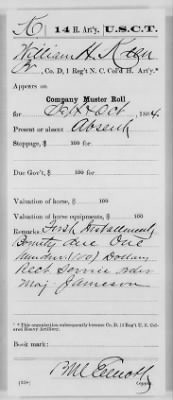 K | 14 H. Art'y. | U.S.C.T.
William H. Keen
, Co. D, 1 Reg't N. C. Col'd H. Art'y.*
Appears on
Company Muster Roll
for Sept & Oct, 1864.
Present or absent Absent
Stoppage, $ 100 for
Due Gov't, $ 100 for
Valuation of horse, $ 100
Valuation of horse equipments, $ 100
Remarks: First Installment
Bounty due One
Hundred (100) Dollars
Rect Service
Maj. Jameson
* This organization subsequently became Co. D, 14 Reg't U. S. Colored Heavy Artillery.
Book mark:
(358) Copyist.